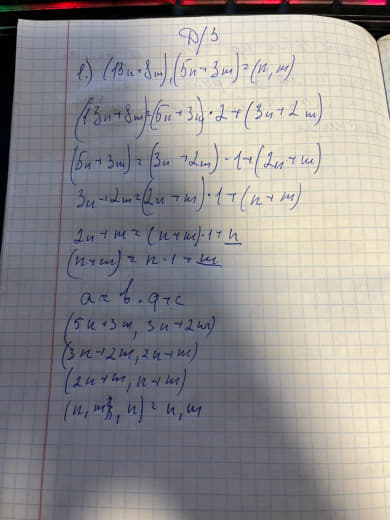 Д/З
1.) (13n+8m),(5n+3m)=(n,m)
(13n+8m)=(5n+3m)·2+(3n+2m)
(5n+3m)=(3n+2m)·1+(2n+m)
3n+2m=(2n+m)·1+(n+m)
2n+m=(n+m)·1+n
(n+m)=n·1+m
a=b·q+c
(5n+3m, 3n+2m)
(3n+2m, 2n+m)
(2n+m, n+m)
(n, m, n)=n, m